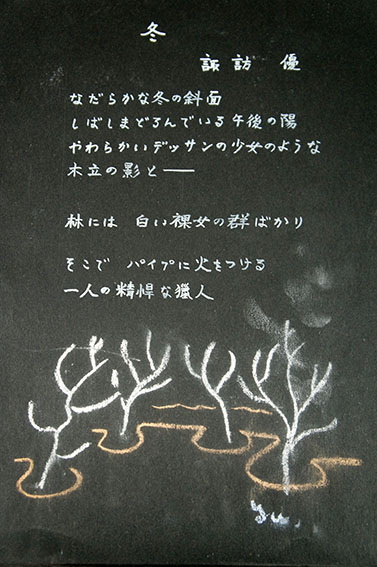 冬
諏訪 優
なだらかな冬の斜面
しばしまどろんでいる午後の陽
やわらかいデッサンの少女のような
木立の影と──
林には 白い裸女の群ばかり
そこで パイプに火をつける
一人の精悍な獵人
yu.